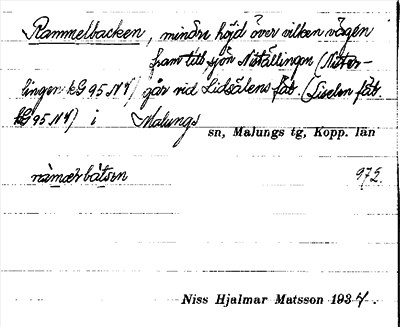 Rammelbacken, mindre höjd över vilken vägen
fram till sjön Nötällingen (Nöter-
lingen kG 95 NV) går vid Lidsälens fäb. (Liselen fäb.
kG 95 NV) i Malungs
sn, Malungs tg, Kopp. län
ràmærbátsen 972.
Niss Hjalmar Matsson 1934.